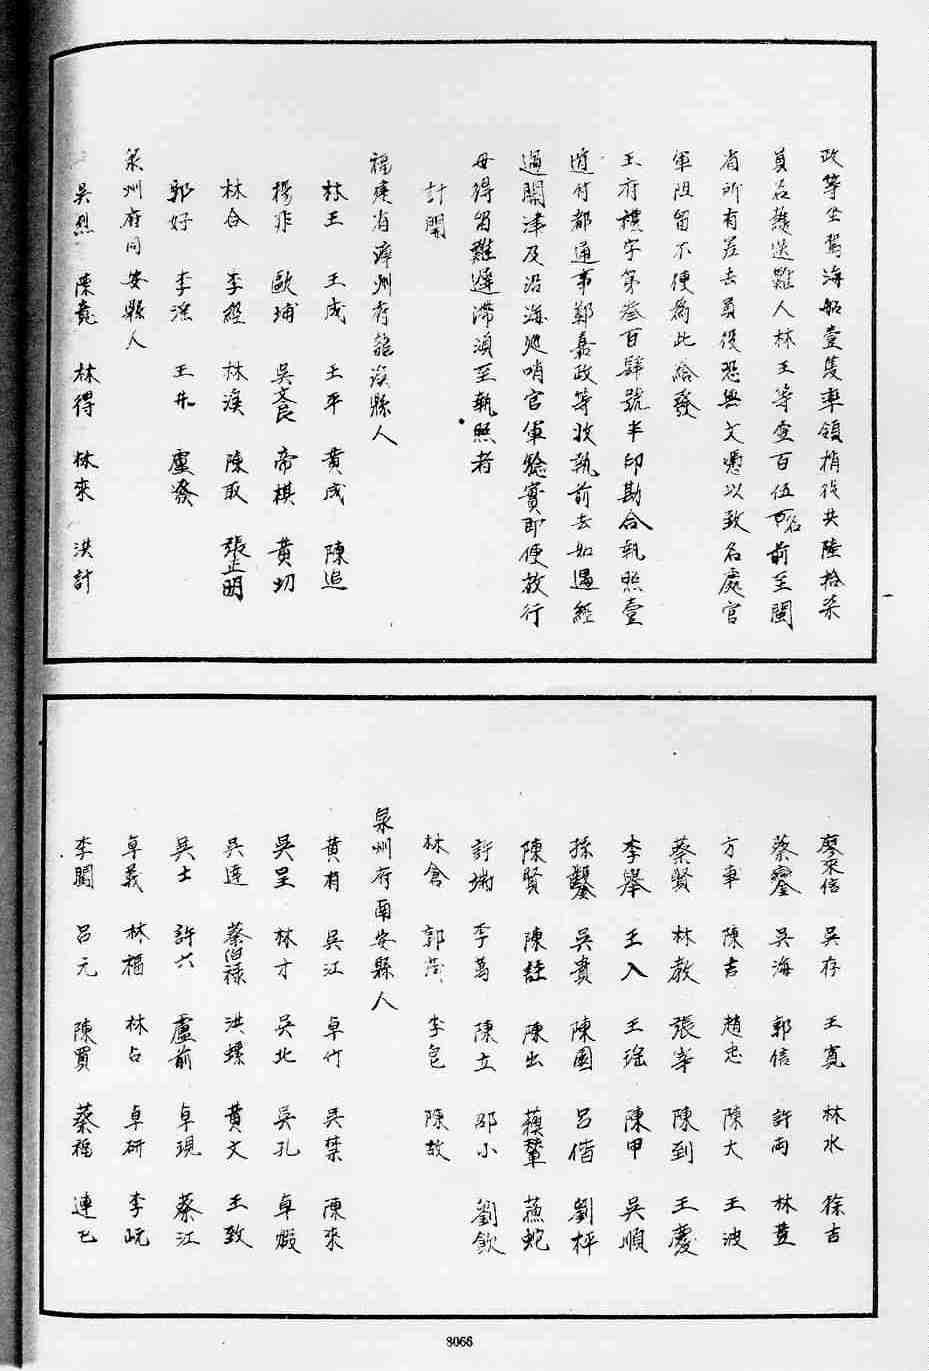 政等坐駕海船壹隻率領梢役共陸拾柒
員名護送難人林王等壹百伍名前至閩
省所有差去員役恐無文憑以致名處官
軍阻留不便爲此給發
王府禮字第叁百肆號半印勘合執照壹
道付都通事鄭嘉政等收執前去如遇經
過關津及沿海巡哨官軍驗實即便放行
毋得留難遲滯須至執照者
計開
福建省漳州府龍溪縣人
林王 王成 王平 黃成 陳追
楊非 歐埔 吳文良 帝棋 黃切
林合 李經 林漢 陳取 張正明
郭好 李 王 盧
泉州府同安縣人
吳烈 陳 林得 林來 洪計
廖宋信 吳存 王寬 林水 徐吉
蔡 吳海 郭信 許兩 林荳
方車 陳吉 趙忠 陳大 王波
蔡賢 林教 張 陳到 王慶
李舉 王入 王瑶 陳甲 吳順
孫 吳貴 陳國 呂偕 劉枰
陳賢 陳註 陳出 蘇 蘇蛇
許瑞 李萬 陳立 邵小 劉欽
林倉 郭 李包 陳故
泉州府南安縣人
黃有 吳江 卓竹 吳 陳來
吳呈 林才 吳北 吳孔 卓
吳達 蔡伯祿 洪螺 黃文 王致
吳士 許六 盧前 卓現 蔡江
卓義 林福 林占 卓研 李
李闖 呂元 陳買 蔡福 連
8066